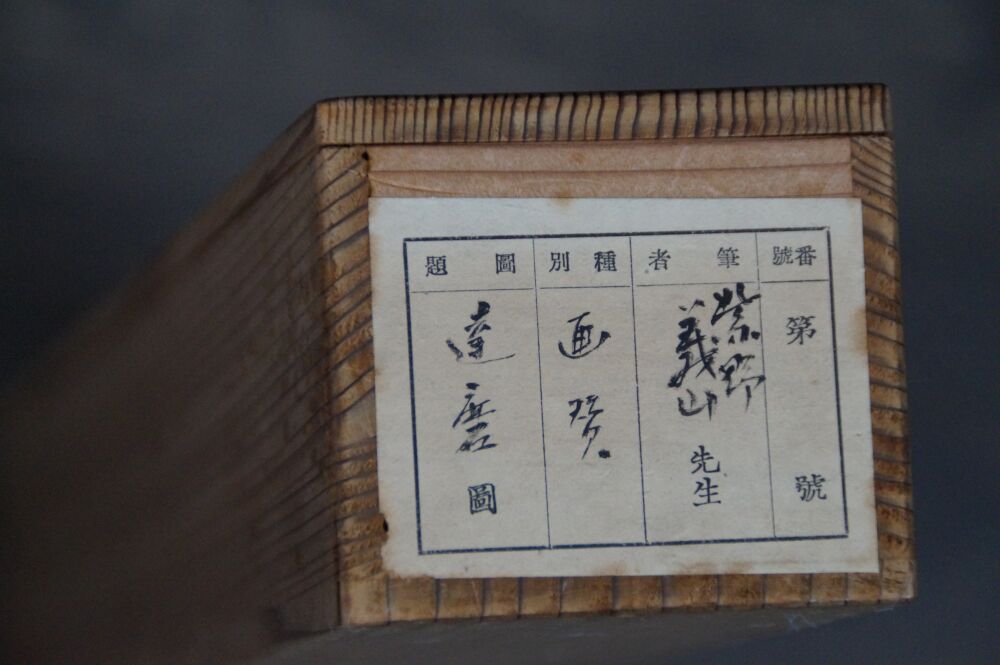 番號
第 號
筆者
紫野
義山先生
種別
画賛
圖題
達磨圖